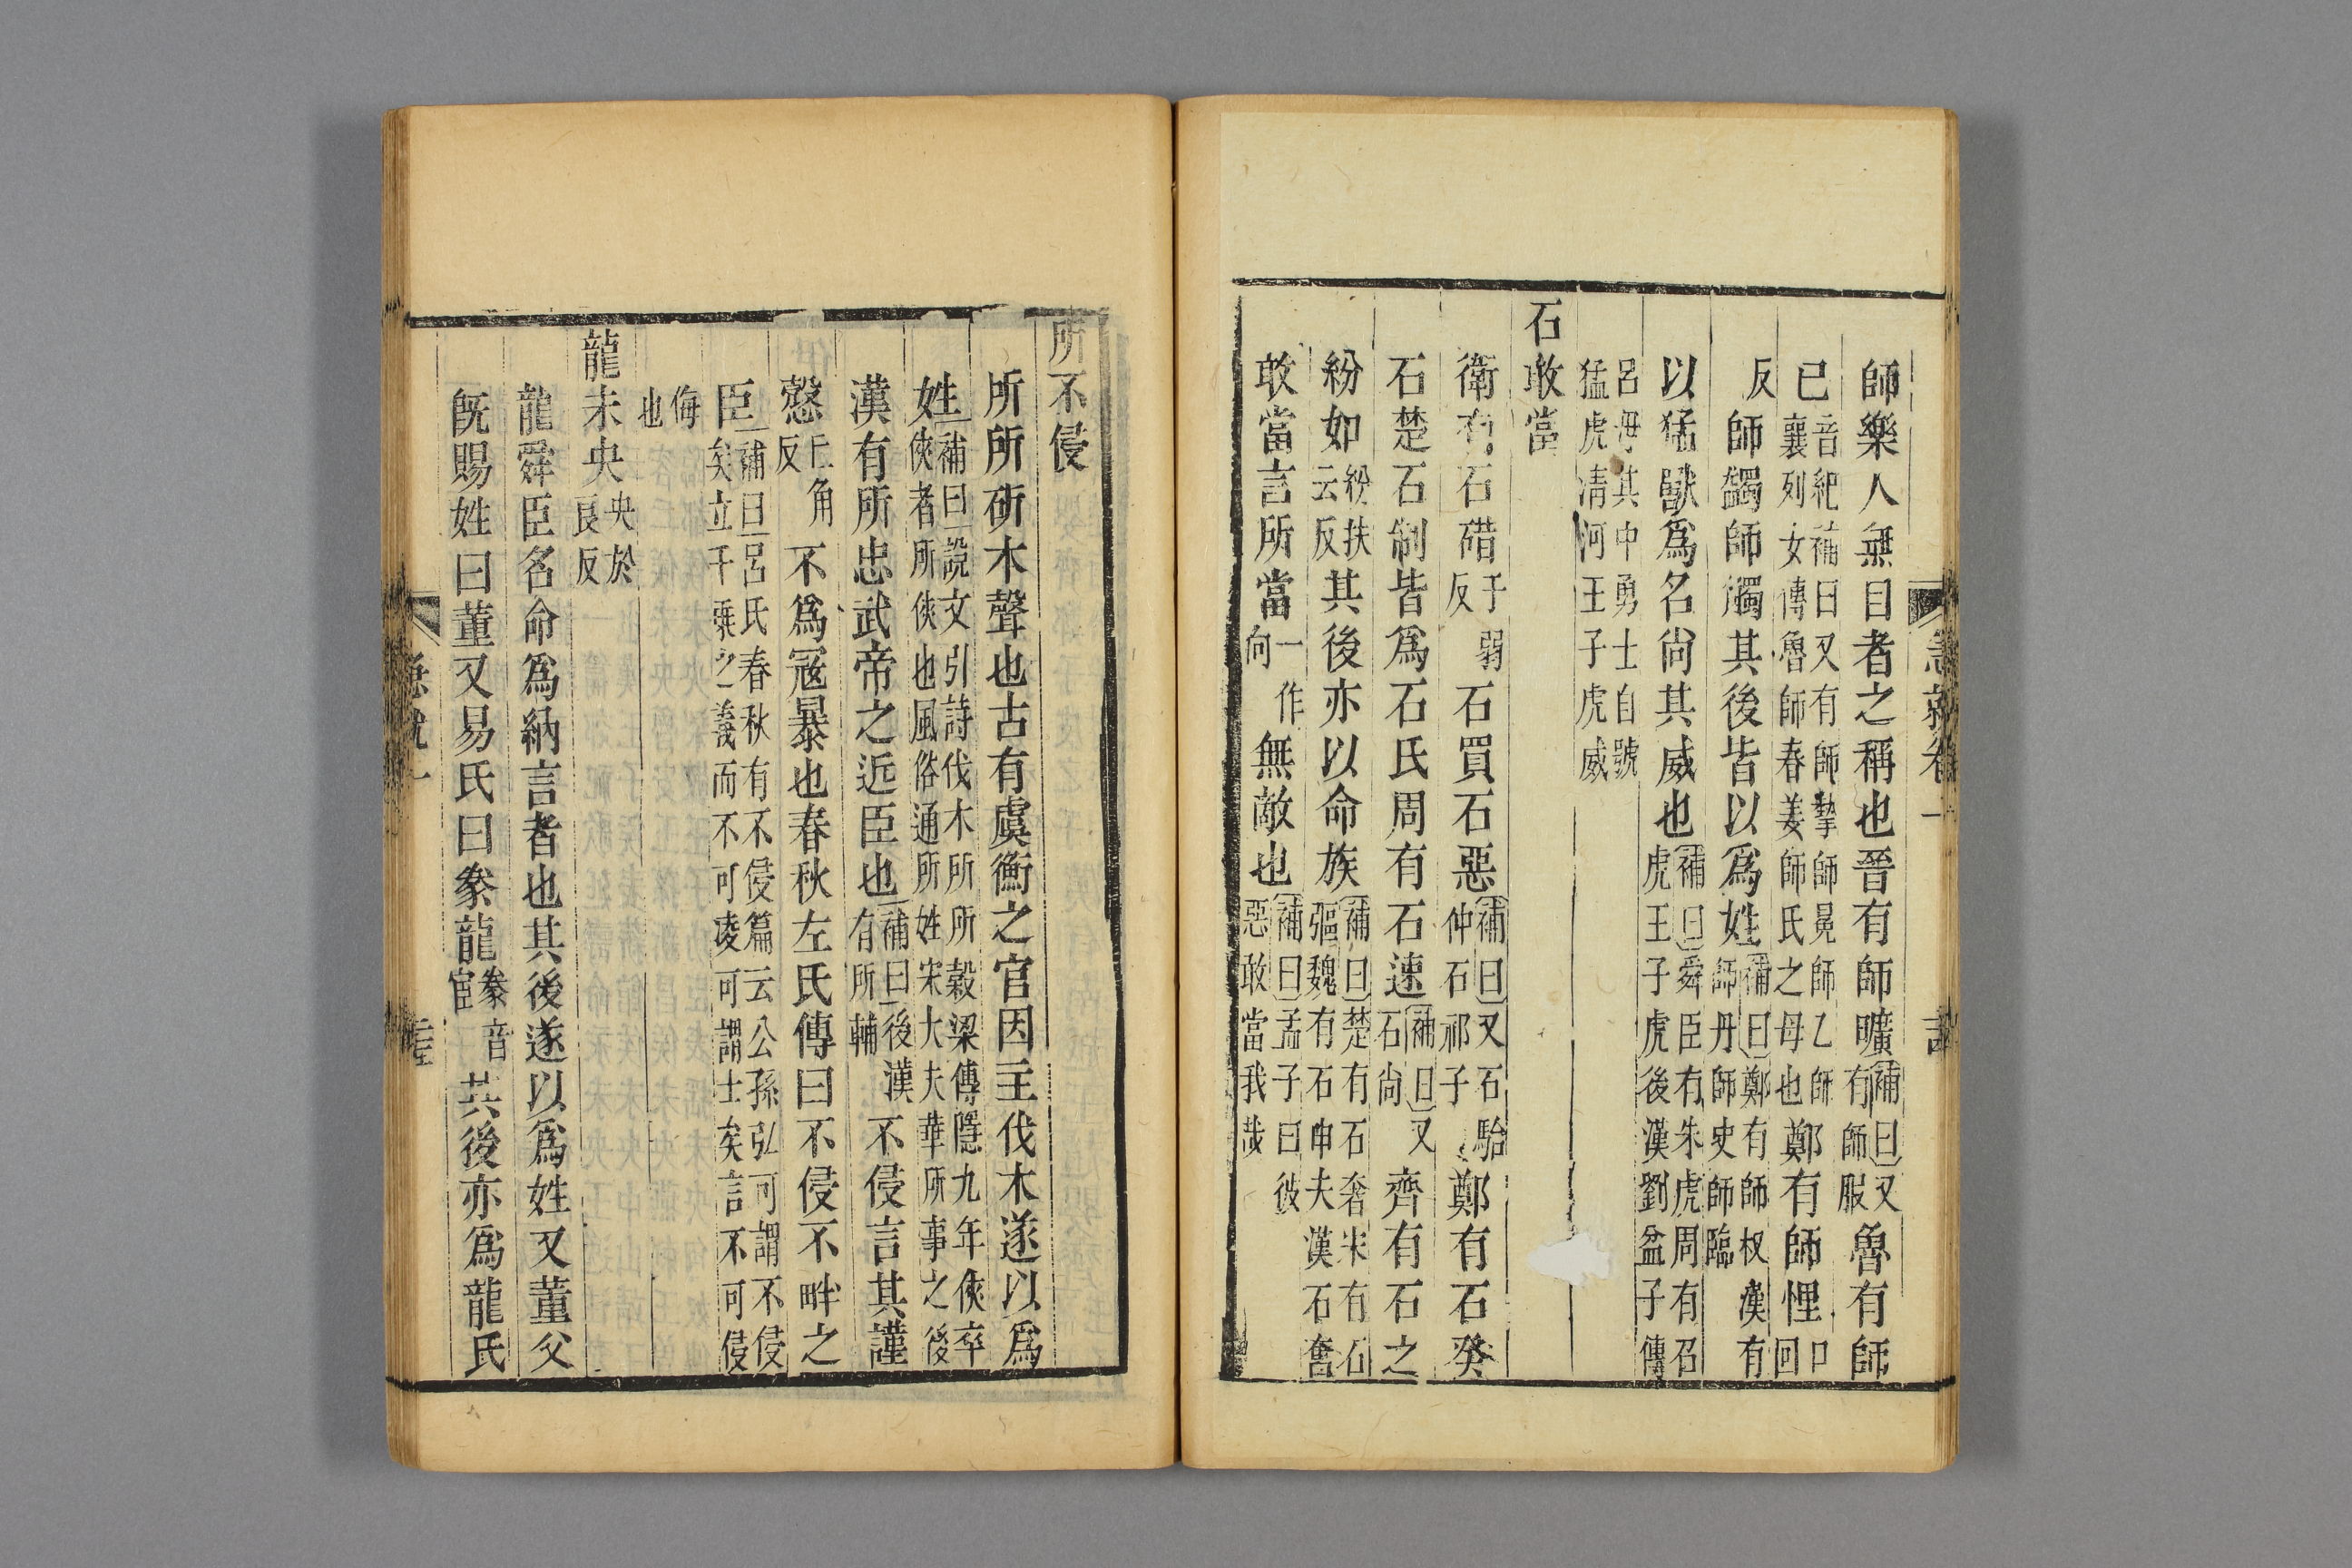 師樂人無目者之稱也晉有師曠補曰又有師服魯有師
已音紀補曰又有師摯師晃師乙師襄列女傳魯師春姜師氏之母也鄭有師悝口回
反師蠲師觸其後皆以爲姓補曰鄭有師叔漢有師丹師史師臨
以猛獸爲名尚其威也補曰舜臣有朱虎周有召虎王子虎後漢劉盆子傳
呂母其中勇士自號猛虎凊河王子虎威
石敢當
衛有石碏千弱反石買石惡補曰又石駘仲石祁子鄭有石癸
石楚石制皆爲石氏周有石速補曰又石尚齊有石之
紛如紛扶云反其後亦以命族補曰楚有石奢宋有石彄魏有石申夫漢石奮
敢當言所當一作向無敵也補曰孟子曰彼惡敢當我哉
急就卷一
所不侵
所所斫木聲也古有虞衡之官因主伐木遂以爲
姓補曰說文引詩伐木所所穀梁傳隱九年俠卒俠者所俠也風俗通所姓宋大夫華所事之後
漢有所忠武帝之近臣也補曰後漢有所輔不侵言其謹
愨上角反不爲寇暴也春秋左氏傳曰不侵不畔之
臣補曰呂氏春秋有不侵篇云公孫弘可謂不侵矣立千乘之義而不可凌可謂士矣言不可侵
侮也
龍未央央於良反
龍舜臣名命爲納言者也其後遂以爲姓又董父
旣賜姓曰董又易氏曰豢龍豢音宦其後亦爲龍氏